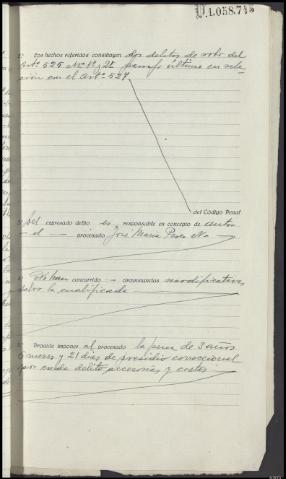 L.058.746
Los hechos referidos constituyen dos delitos de robo del
Artº 525 nº 1º y 2º parrafo último en rela-
ción con el artº 527
del Código Penal
del expresado delito es responsable en concepto de autor
el procesado José María
No han concurrido circunstancias modificativas
salvo la cualificada
Procede imponer al procesado la pena de 3 años
6 meses y 21 dias de presidio correccional
por cada delito, accesorias y costas